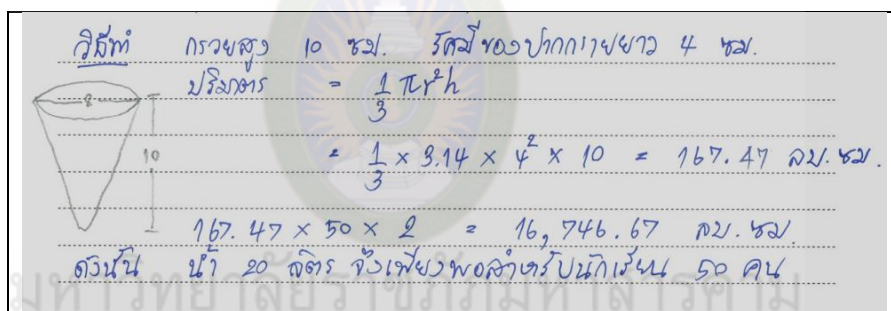 วิธีทำ กรวยสูง 10 ซม. รัศมีของปากกรวยยาว 4 ซม.
ปริมาตร = 1/3 πr²h
8
= 1/3 × 3.14 × 4² × 10 = 167.47 ลบ.ซม.
10
167.47 × 50 × 2 = 16,746.67 ลบ.ซม.
ดังนั้น น้ำ 20 ลิตร จึงเพียงพอสำหรับนักเรียน 50 คน
มหาวิทยาลัยราชภัฏมหาสารคาม